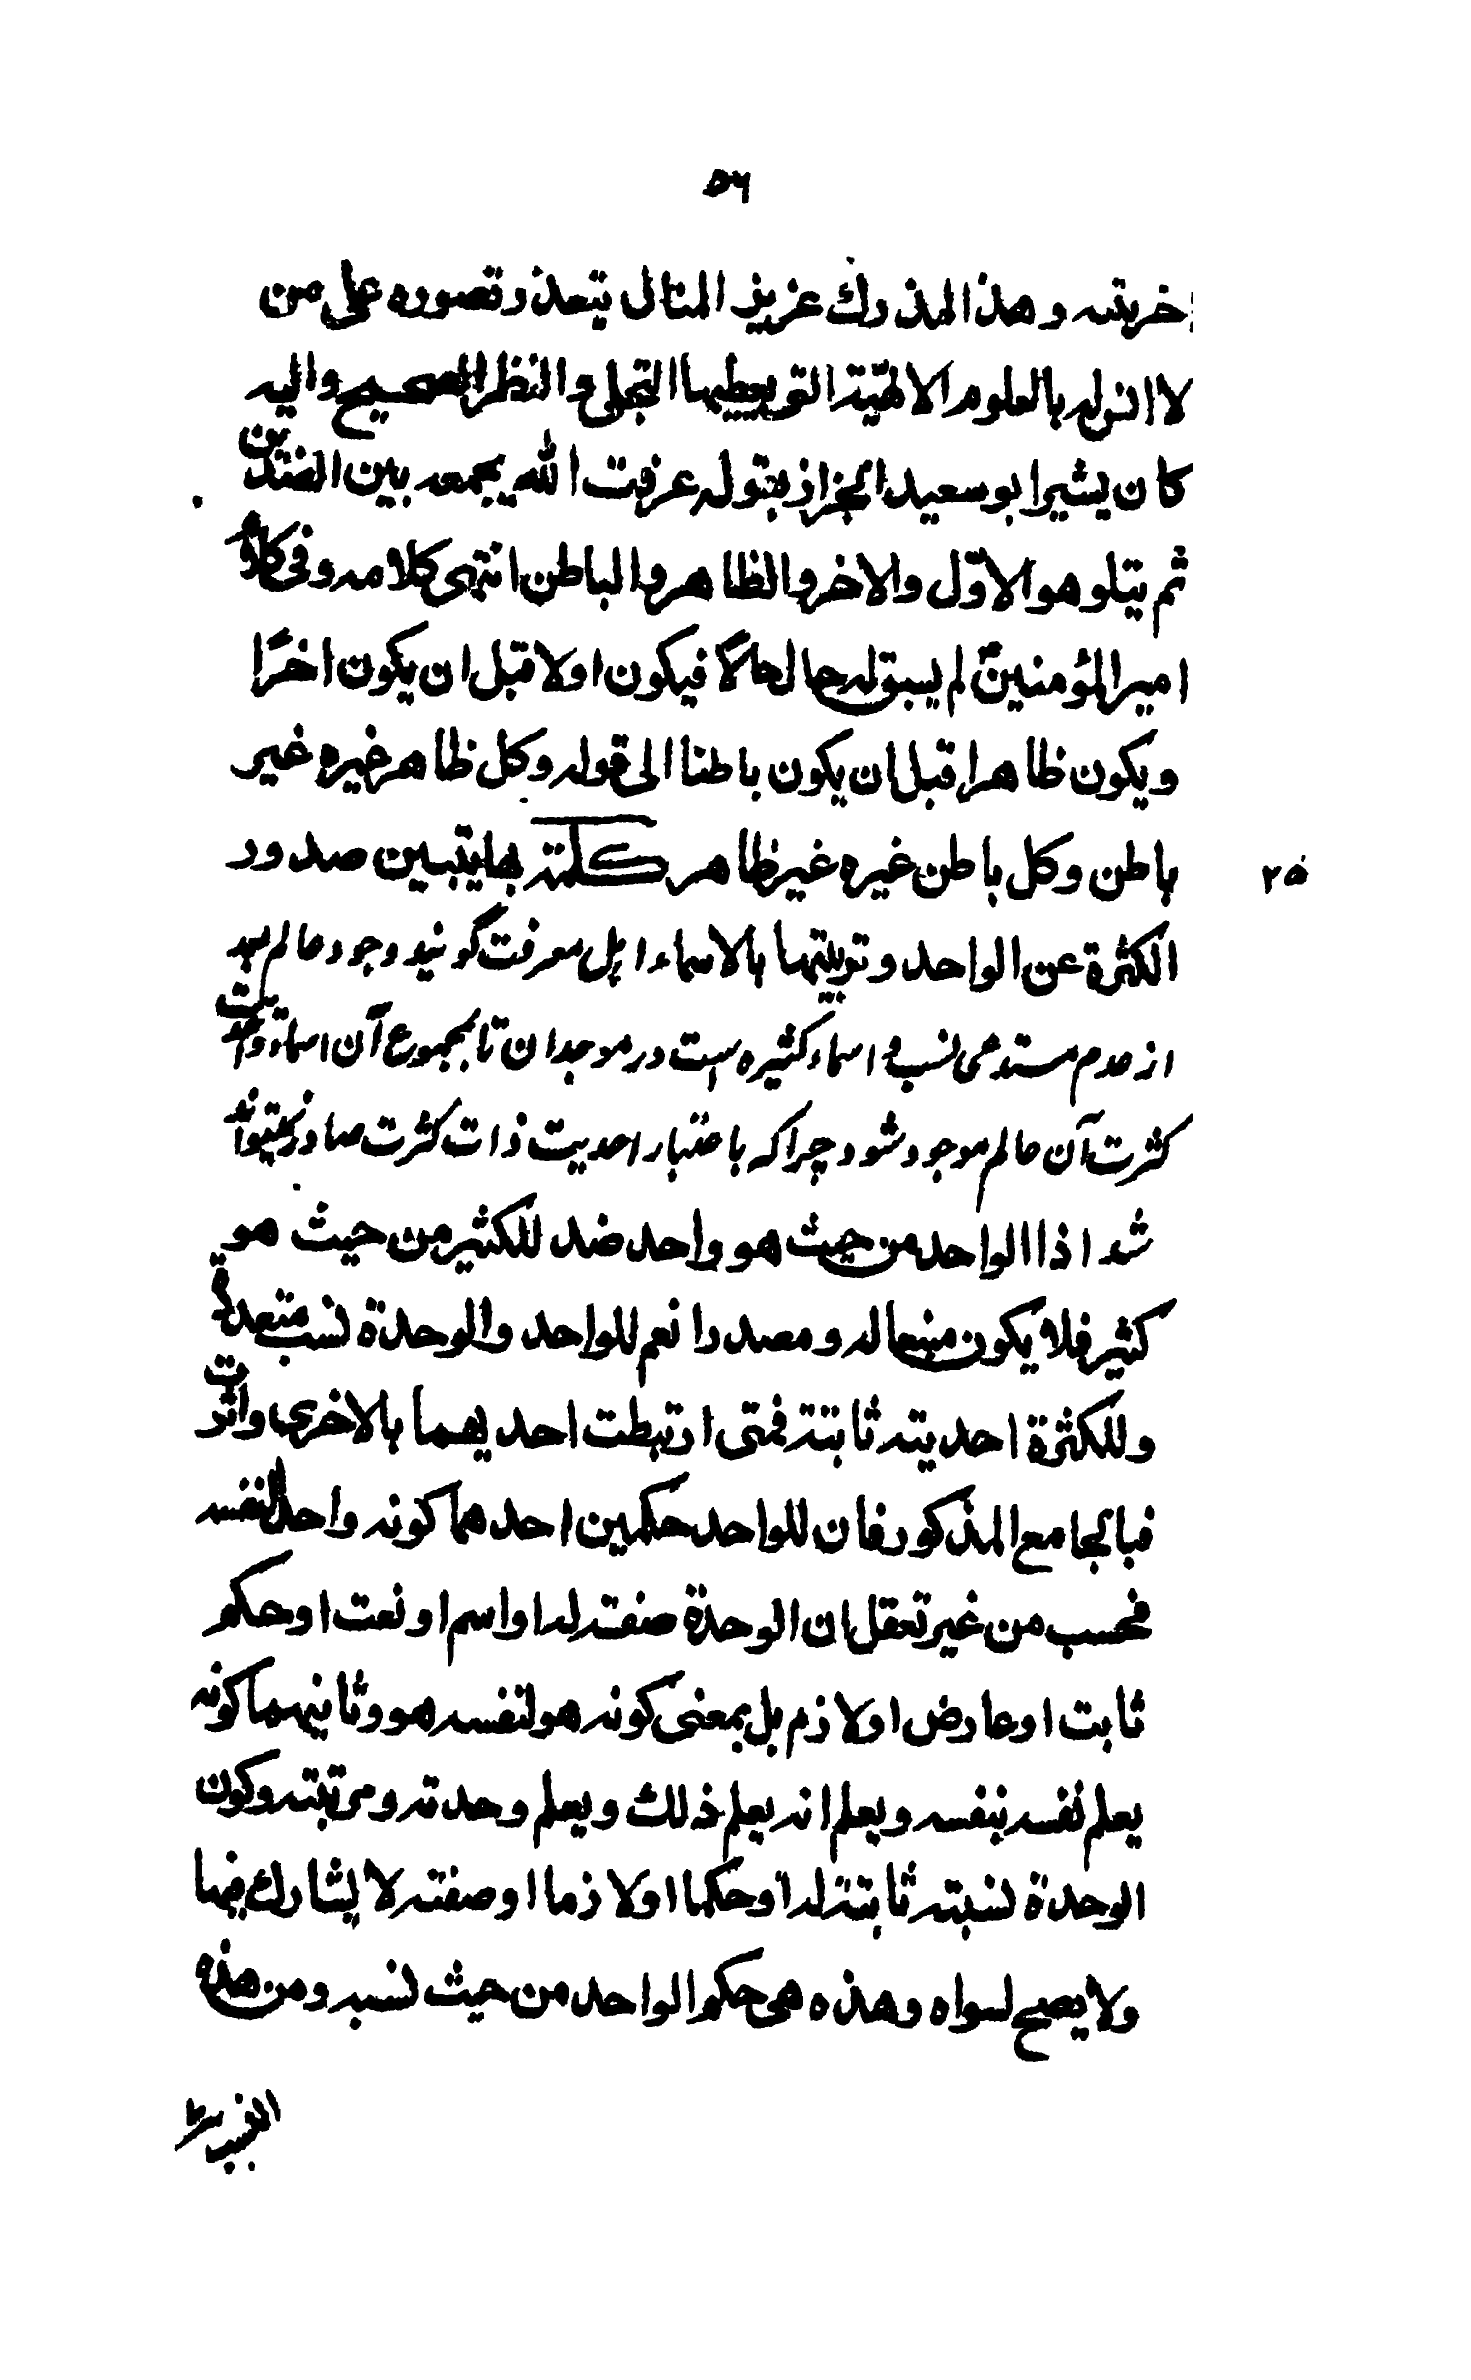 ٥٦
اخريته وهذا المدرك عزيز المنال يتعذر تصوره على من
لا انس له بالعلوم الالهية التى يعطيها التجلى والنظر الصحيح واليه
كان يشير ابو سعيد الخراز بقوله عرفت الله بجمعه بين الضدين
ثم يتلو هو الاوّل والاخر والظاهر والباطن انتهى كلامه وفى كلام
امير المؤمنين لم يسبق له حال حالاً فيكون اولا قبل ان يكون اخرًا
ويكون ظاهرا قبل ان يكون باطنا الى قوله وكل ظاهر غيره غير
باطن وكل باطن غيره غير ظاهر كلمة بها يتبين صدور
٢٥
الكثرة عن الواحد وتربيتها بالاسماء اهل معرفت گويند وجود عالم بعد
از عدم مستدعى نسب و اسماء كثيره است در موجد ان تا بمجموع آن اسماء وحدت
كثرت آن عالم موجود شود چرا كه باعتبار احديت ذات كثرت صادر نميتواند
شد اذا الواحد من حيث هو واحد ضد للكثير من حيث هو
كثير فلا يكون منبعا له ومصدرا نعم للواحد والوحدة نسب متعددة
وللكثرة احدية ثابتة فمتى ارتبطت احديهما بالاخرى واثرت
فبالجامع المذكور فان للواحد حكمين احدهما كونه واحدا لنفسه
فحسب من غير تعقل ان الوحدة صفة له او اسم او نعت او حكم
ثابت او عارض او لازم بل بمعنى كونه هو لنفسه هو وثانيهما كونه
يعلم نفسه بنفسه ويعلم انه يعلم ذلك ويعلم وحدته ومرتبته وكون
الوحدة نسبته ثابتة له او حكما او لازما او صفته لا يشارك فيها
ولا يصح لسواه وهذه هى حكم الواحد من حيث نسبه ومن هذه